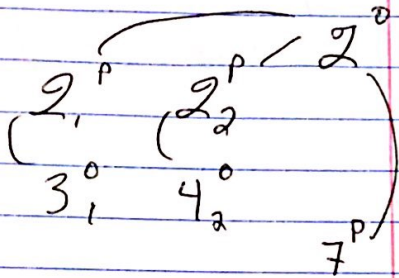 2₁ᵖ 2₂ᵖ 2⁰
3₁⁰ 4₂⁰
7ᵖ